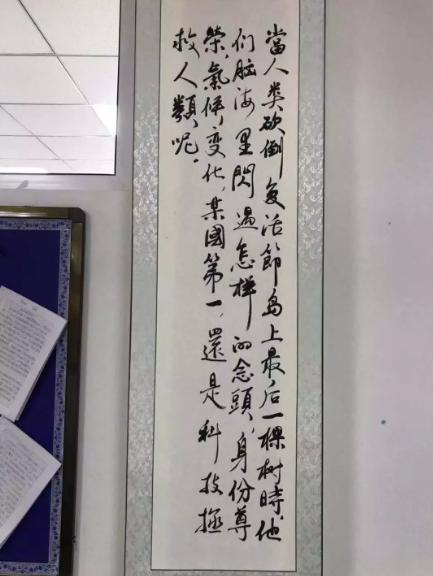 當人类砍倒复活節岛上最后一棵树時,他
们脑海里閃過怎样的念頭,身份尊
榮,氣候变化,某國第一,還是科技拯
救人類呢。